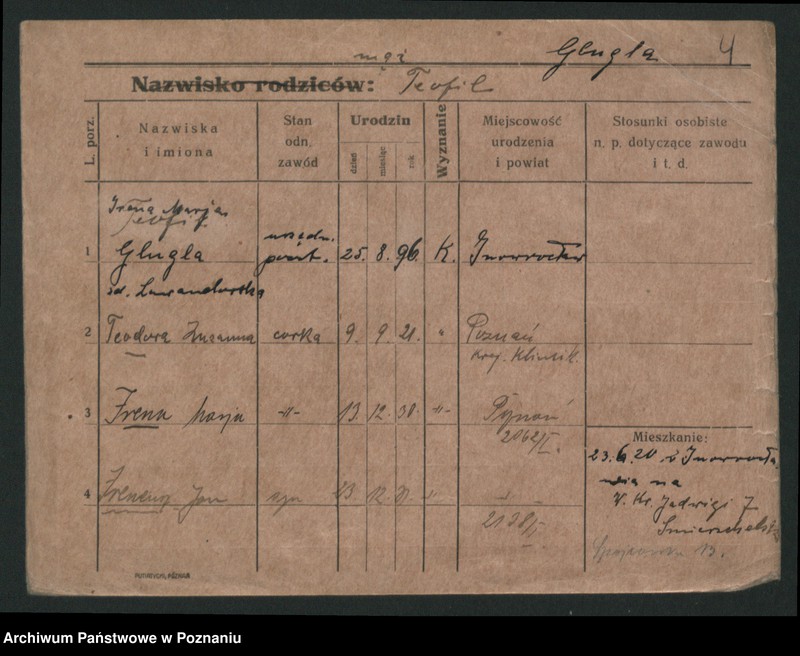 mąż
Glugla 4
Nazwisko rodziców: Teofil
L. porz.
Nazwiska i imiona
Stan odn. zawód
Urodziu
dzień
miesiąc
rok
Wyznanie
Miejscowość urodzenia i powiat
Stosunki osobiste n. p. dotyczące zawodu i t. d.
Irena Marja
Teofil
1 Glugla 25. 8. 96. K. Inowrocław
2 Teodora Zuzanna corka 9. 9. 21. " Poznań
Kraj. Klinik.
3 Irena Marja -"- 13. 12. 30. -"- Poznań
2062/I.
4 Ireneusz Jan syn 13. 12. 30. -"- -"-
2128/I
Mieszkanie:
23.6.20 z Inowrocła
wia na
W. Kr. Jadwigi 7
13.
PUTIATYCKI, POZNAŃ
Archiwum Państwowe w Poznaniu